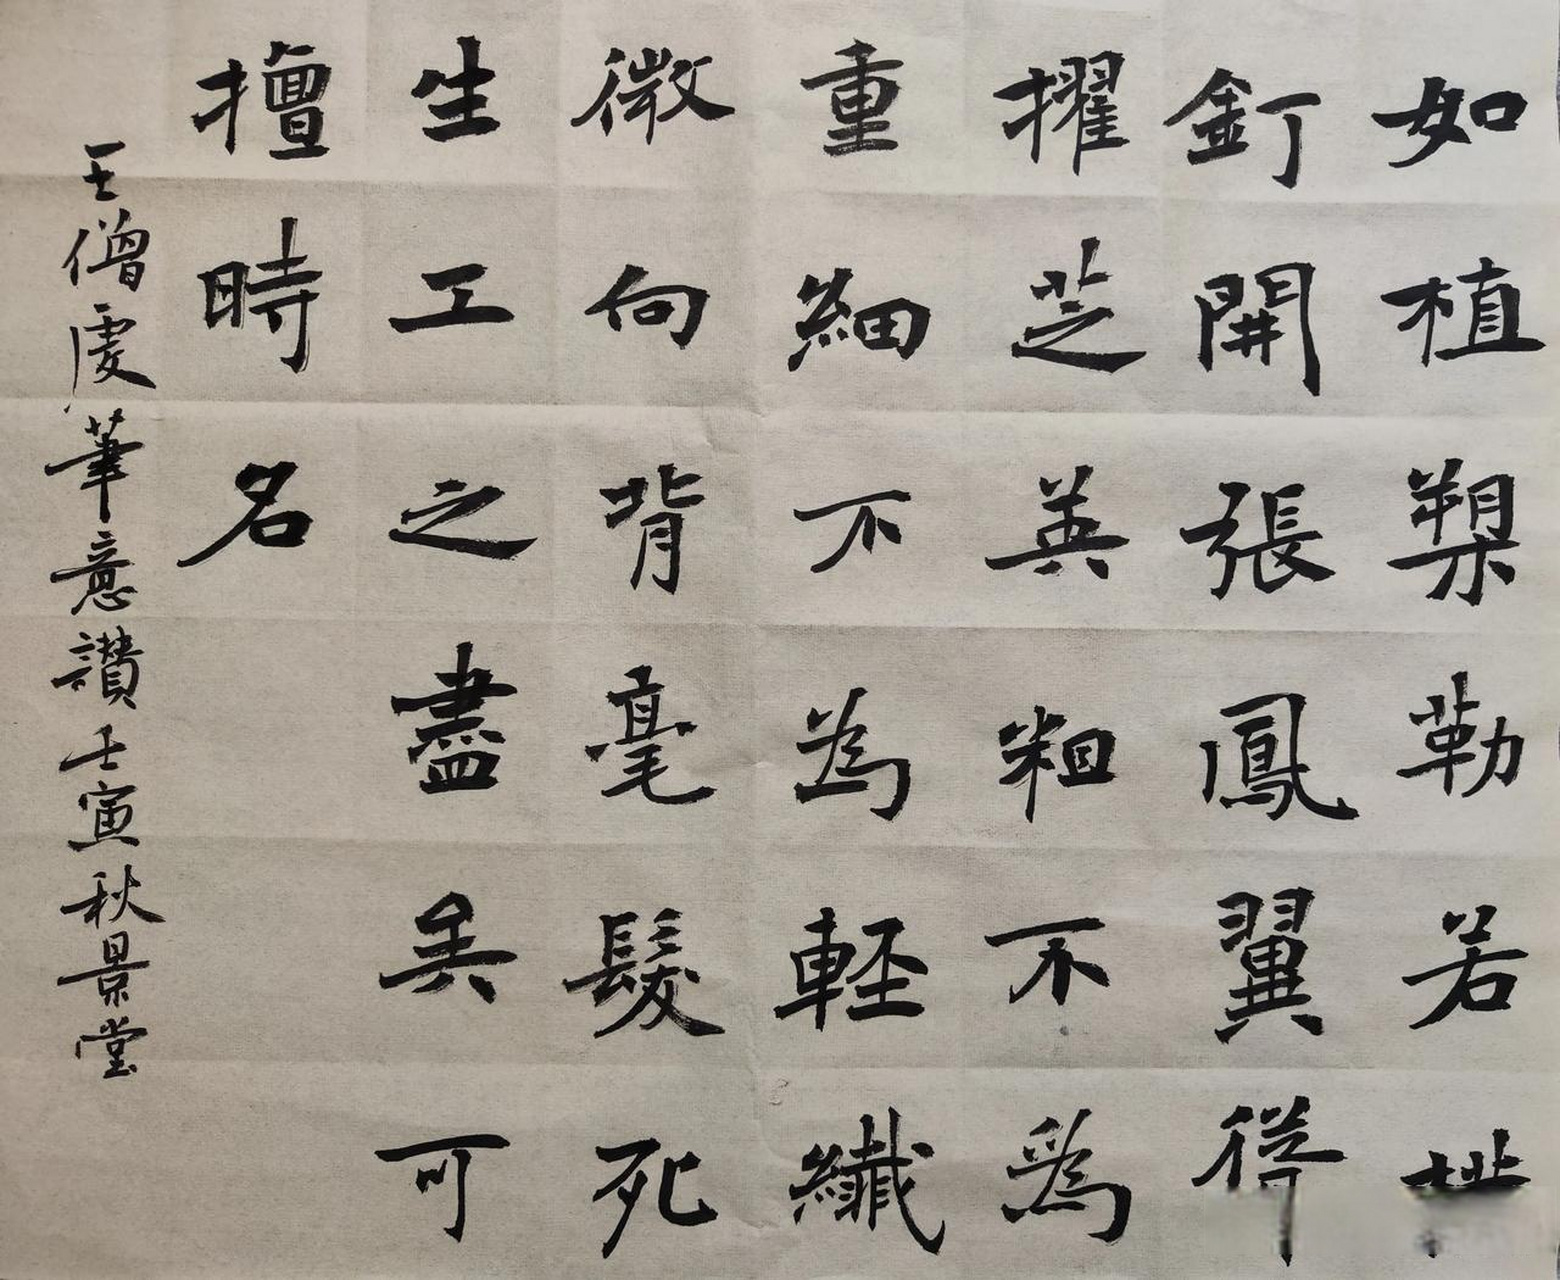 如植槊勒若
釘開張鳳翼
擢芝英粗不爲
重細不為輕纖
微向背毫髮死
生工之盡矣可
擅時名
王僧虔筆意讚壬寅秋景堂